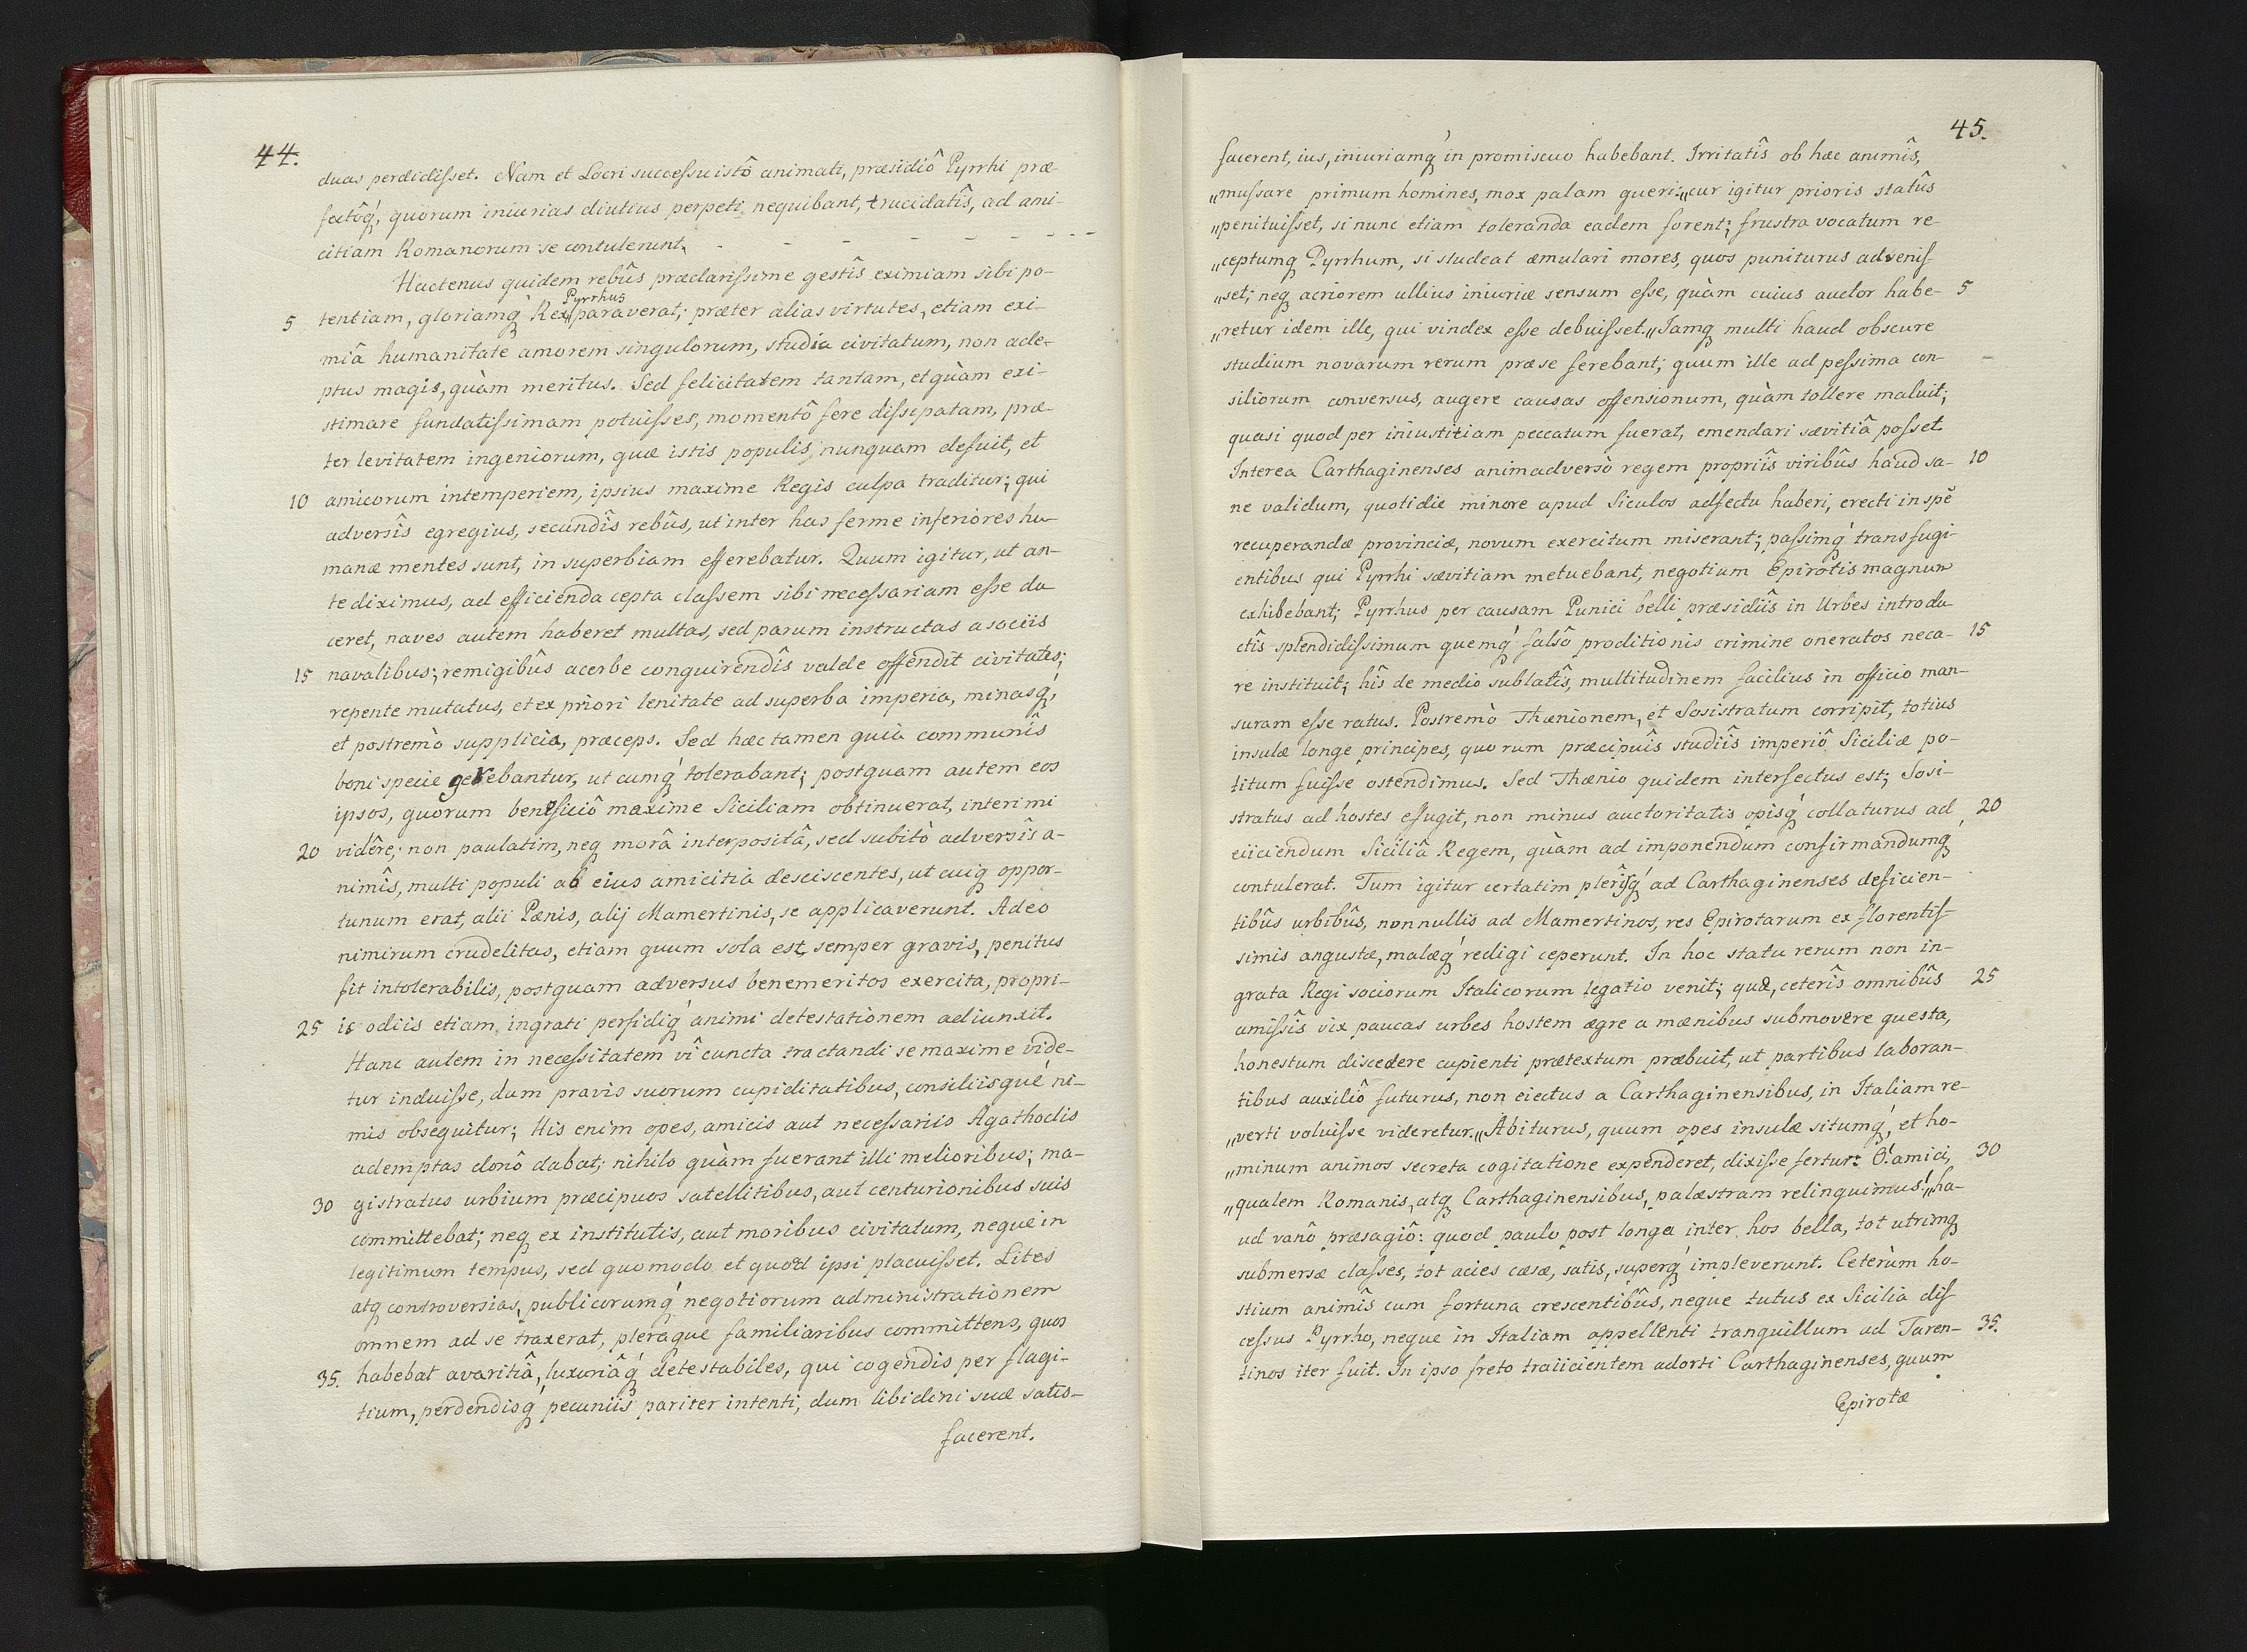 44.
duas perdidisset. Nam et Locri successu istô animati, præsidiô Pyrrhi præ-
fectôq́, quorum iniurias diutius perpeti nequibant, trucidatîs, ad ami-
citiam Romanorum se contulerunt. - - - - - - - - -
Hactenus quidem rebûs præclarissime gestîs eximiam sibi po-
Pyrrhus
5 tentiam, gloriamq́ Rex paraverat; præter alias virtutes, etiam exi-
miâ humanitate amorem singulorum, studia civitatum, non ade-
ptus magis, quàm meritus. Sed felicitatem tantam, et quàm exi-
stimare fundatissimam potuisses, momentô fere dissipatam, præ-
ter levitatem ingeniorum, quæ istis populis nunquam defuit, et
10 amicorum intemperiem, ipsius maxime Regis culpa traditur; qui
adversîs egregius, secundîs rebûs, ut inter has ferme inferiores hu-
manæ mentes sunt, in superbiam efferebatur. Quum igitur, ut an-
te diximus, ad efficienda cepta classem sibi necessariam esse du-
ceret, naves autem haberet multas, sed parum instructas a sociis
15 navalibus; remigibûs acerbe conquirendîs valde offendit civitates;
repente mutatus, et ex priori lenitate ad superba imperia, minasq́,
et postremò supplicia, præceps. Sed hæc tamen quia communîs
boni specie gerebantur, ut cumq́ tolerabant; postquam autem eos
ipsos, quorum beneficiô maxime Siciliam obtinuerat, interimi
20 vidêre; non paulatim, neq morâ interpositâ, sed subitò adversîs a-
nimîs, multi populi ab eius amicitia desciscentes, ut cuiq oppor-
tunum erat, alii Pœnis, alij Mamertinis, se applicaverunt. Adeo
nimirum crudelitas, etiam quum sola est, semper gravis, penitus
fit intolerabilis, postquam adversus benemeritos exercita, propri-
25 is odiis etiam ingrati perfidiq́ animi detestationem adiunxit.
Hanc autem in necessitatem vî cuncta tractandi se maxime vide-
tur induisse, dum pravis suorum cupiditatibus, consiliisqué ni-
mis obsequitur; His enim opes, amicis aut necessariis Agathoclis
ademptas donô dabat; nihilo quàm fuerant illi melioribus; ma-
30 gistratus urbium præcipuos satellitibus, aut centurionibus suis
committebat; neq ex institutis, aut moribus civitatum, neque in
legitimum tempus, sed quomodo et quoad ipsi placuisset. Lites
atq controversias, publicorumq́ negotiorum administrationem
omnem ad se traxerat, pleraque familiaribus committens, quos
35. habebat avaritiâ, luxuriâq́ detestabiles, qui cogendis per flagi-
tium, perdendisq́ pecuniis pariter intenti, dum libidini suæ satis-
facerent.
45.
facerent, ius, iniuriamq́ in promiscuo habebant. Irritatîs ob hæc animîs,
„mussare primum homines, mox palam queri: „cur igitur prioris statûs
„penituisset, si nunc etiam toleranda eadem forent; frustra vocatum re-
„ceptumq Pyrrhum, si studeat æmulari mores, quos puniturus advenis-
„set; neq acriorem ullius iniuriæ sensum esse, quàm cuius auctor habe- 5
„retur idem ille, qui vindex esse debuisset.„ Iamq multi haud obscure
studium novarum rerum præ se ferebant; quum ille ad pessima con-
siliorum conversus, augere causas offensionum, quàm tollere maluit;
quasi quod per iniustitiam peccatum fuerat, emendari sævitiâ posset.
Interea Carthaginenses animadversò regem propriîs viribûs haud sa- 10
ne validum, quotidie minore apud Siculos adfectu haberi, erecti in spê
recuperandæ provinciæ, novum exercitum miserant; passimq́ transfugi-
entibus qui Pyrrhi sævitiam metuebant, negotium Epirotis magnum
exhibebant; Pyrrhus per causam Punici belli præsidiîs in Urbes introdu-
ctîs splendidissimum quemq́ falsô proditionis crimine oneratos neca- 15
re instituit; hîs de medio sublatîs, multitudinem facilius in officio man-
suram esse ratus. Postremò Thænionem, et Sosistratum corripit, totius
insulæ longe principes, quorum præcipuîs studiîs imperiô Siciliæ po-
titum fuisse ostendimus. Sed Thænio quidem interfectus est; Sosi-
stratus ad hostes effugit, non minus auctoritatis opisq́ collaturus ad 20
eiiciendum Siciliâ Regem, quàm ad imponendum confirmandumq
contulerat. Tum igitur certatim plerîsq́ ad Carthaginenses deficien-
tibûs urbibûs, nonnullis ad Mamertinos, res Epirotarum ex florentis-
simis angustæ, malæq́ redigi ceperunt. In hoc statu rerum non in-
grata Regi sociorum Italicorum legatio venit; quæ, ceterîs omnibûs 25
amissîs vix paucas urbes hostem ægre a mœnibus submovere questa,
honestum discedere cupienti prætextum præbuit, ut partibus laboran-
tibus auxiliô futurus, non eiectus a Carthaginensibus, in Italiam re-
„verti voluisse videretur. „Abiturus, quum opes insulæ situmq́, et ho-
„minum animos secreta cogitatione expenderet, dixisse fertur: O! amici, 30
„qualem Romanis, atq Carthaginensibus, palæstram relinquimus!„ ha-
ud vanô præsagiô: quod paulo post longa inter hos bella, tot utrimq
submersæ classes, tot acies cæsæ, satis, superq́ impleverunt. Ceterùm ho-
stium animîs cum fortuna crescentibûs, neque tutus ex Sicilia dis-
cessus Pyrrho, neque in Italiam appellenti tranquillum ad Taren- 35.
tinos iter fuit. In ipso freto traiicientem adorti Carthaginenses, quum
Epirotæ